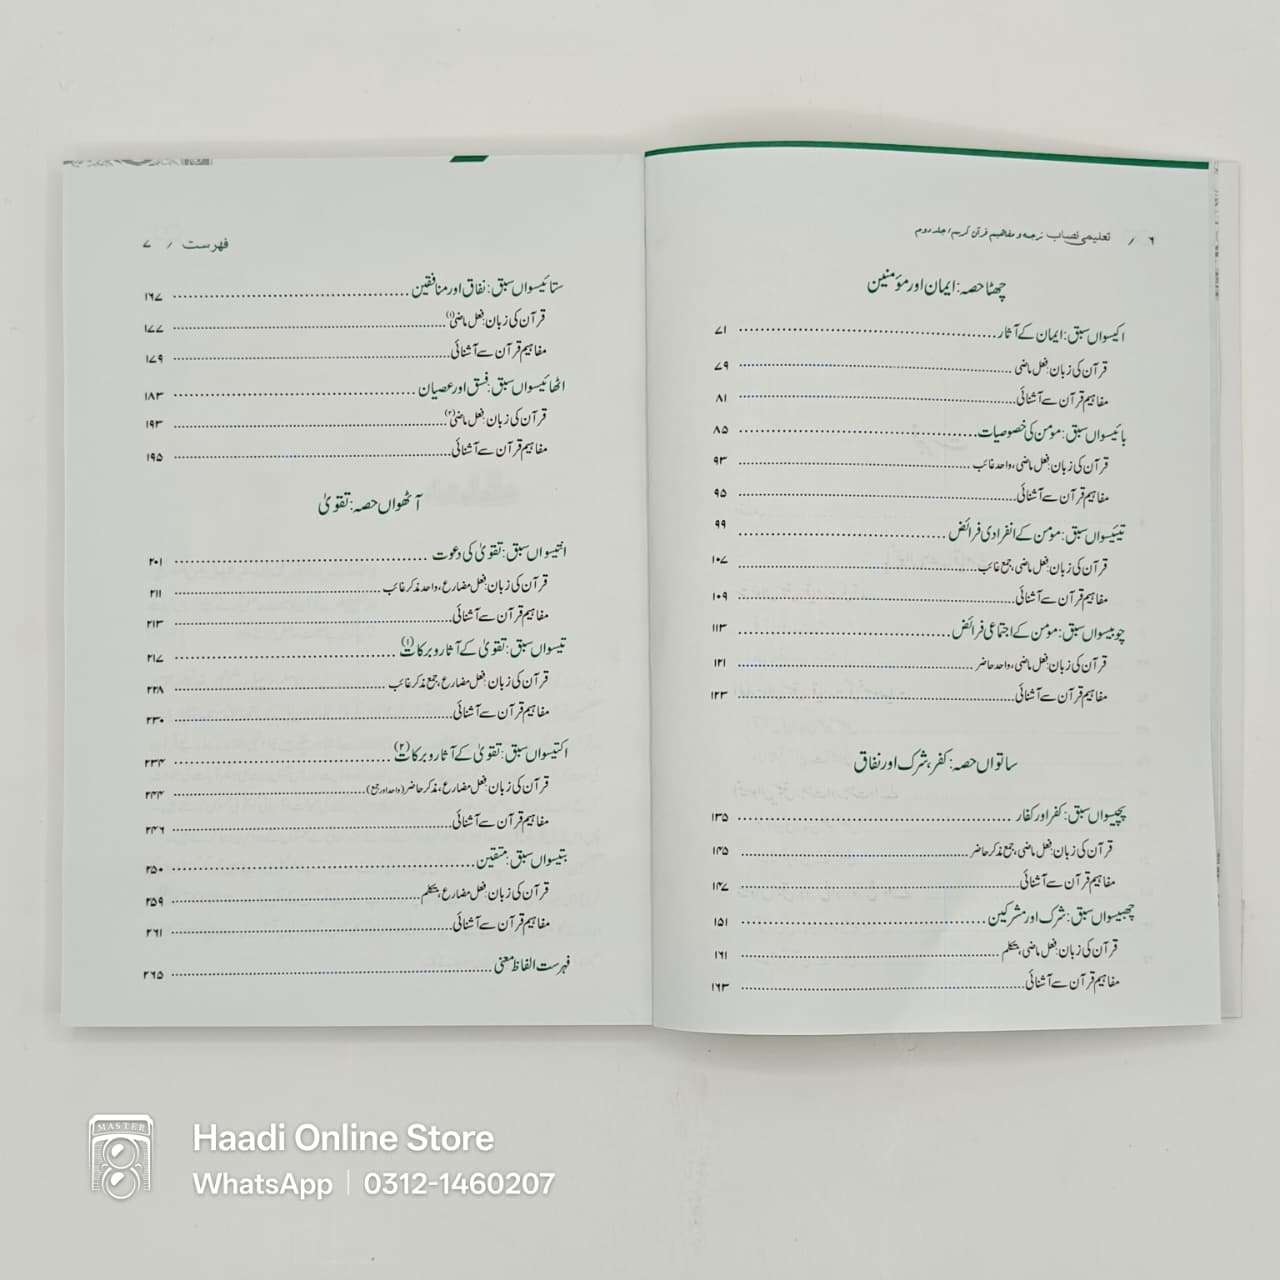 ۶ / تعلیمی نصاب ترجمہ و مفاہیم قرآن کریم؍جلد دوم
چھٹا حصہ: ایمان اور مؤمنین
اکیسواں سبق: ایمان کے آثار ........ ۷۱
قرآن کی زبان: فعل ماضی ........ ۷۹
مفاہیم قرآن سے آشنائی ........ ۸۱
بائیسواں سبق: مومن کی خصوصیات ........ ۸۵
قرآن کی زبان: فعل ماضی، واحد غائب ........ ۹۳
مفاہیم قرآن سے آشنائی ........ ۹۵
تیئیسواں سبق: مومن کے انفرادی فرائض ........ ۹۹
قرآن کی زبان: فعل ماضی، جمع غائب ........ ۱۰۷
مفاہیم قرآن سے آشنائی ........ ۱۰۹
چوبیسواں سبق: مومن کے اجتماعی فرائض ........ ۱۱۳
قرآن کی زبان: فعل ماضی، واحد حاضر ........ ۱۲۱
مفاہیم قرآن سے آشنائی ........ ۱۲۳
ساتواں حصہ: کفر، شرک اور نفاق
پچیسواں سبق: کفر اور کفار ........ ۱۳۵
قرآن کی زبان: فعل ماضی، جمع مذکر حاضر ........ ۱۴۵
مفاہیم قرآن سے آشنائی ........ ۱۴۷
چھبیسواں سبق: شرک اور مشرکین ........ ۱۵۱
قرآن کی زبان: فعل ماضی، متکلم ........ ۱۶۱
مفاہیم قرآن سے آشنائی ........ ۱۶۳
فہرست / ۷
ستائیسواں سبق: نفاق اور منافقین ........ ۱۶۷
قرآن کی زبان: فعل ماضی (۱) ........ ۱۷۷
مفاہیم قرآن سے آشنائی ........ ۱۷۹
اٹھائیسواں سبق: فسق اور عصیان ........ ۱۸۳
قرآن کی زبان: فعل ماضی (۲) ........ ۱۹۳
مفاہیم قرآن سے آشنائی ........ ۱۹۵
آٹھواں حصہ: تقویٰ
انتیسواں سبق: تقویٰ کی دعوت ........ ۲۰۱
قرآن کی زبان: فعل مضارع، واحد مذکر غائب ........ ۲۱۱
مفاہیم قرآن سے آشنائی ........ ۲۱۳
تیسواں سبق: تقویٰ کے آثار و برکات (۱) ........ ۲۱۷
قرآن کی زبان: فعل مضارع، جمع مذکر غائب ........ ۲۲۸
مفاہیم قرآن سے آشنائی ........ ۲۳۰
اکتیسواں سبق: تقویٰ کے آثار و برکات (۲) ........ ۲۳۴
قرآن کی زبان: فعل مضارع، مذکر حاضر (واحد اور جمع) ........ ۲۴۴
مفاہیم قرآن سے آشنائی ........ ۲۴۶
بتیسواں سبق: متقین ........ ۲۵۰
قرآن کی زبان: فعل مضارع، متکلم ........ ۲۵۹
مفاہیم قرآن سے آشنائی ........ ۲۶۱
فہرست الفاظ معنی ........ ۲۶۵
MASTER
Haadi Online Store
WhatsApp | 0312-1460207